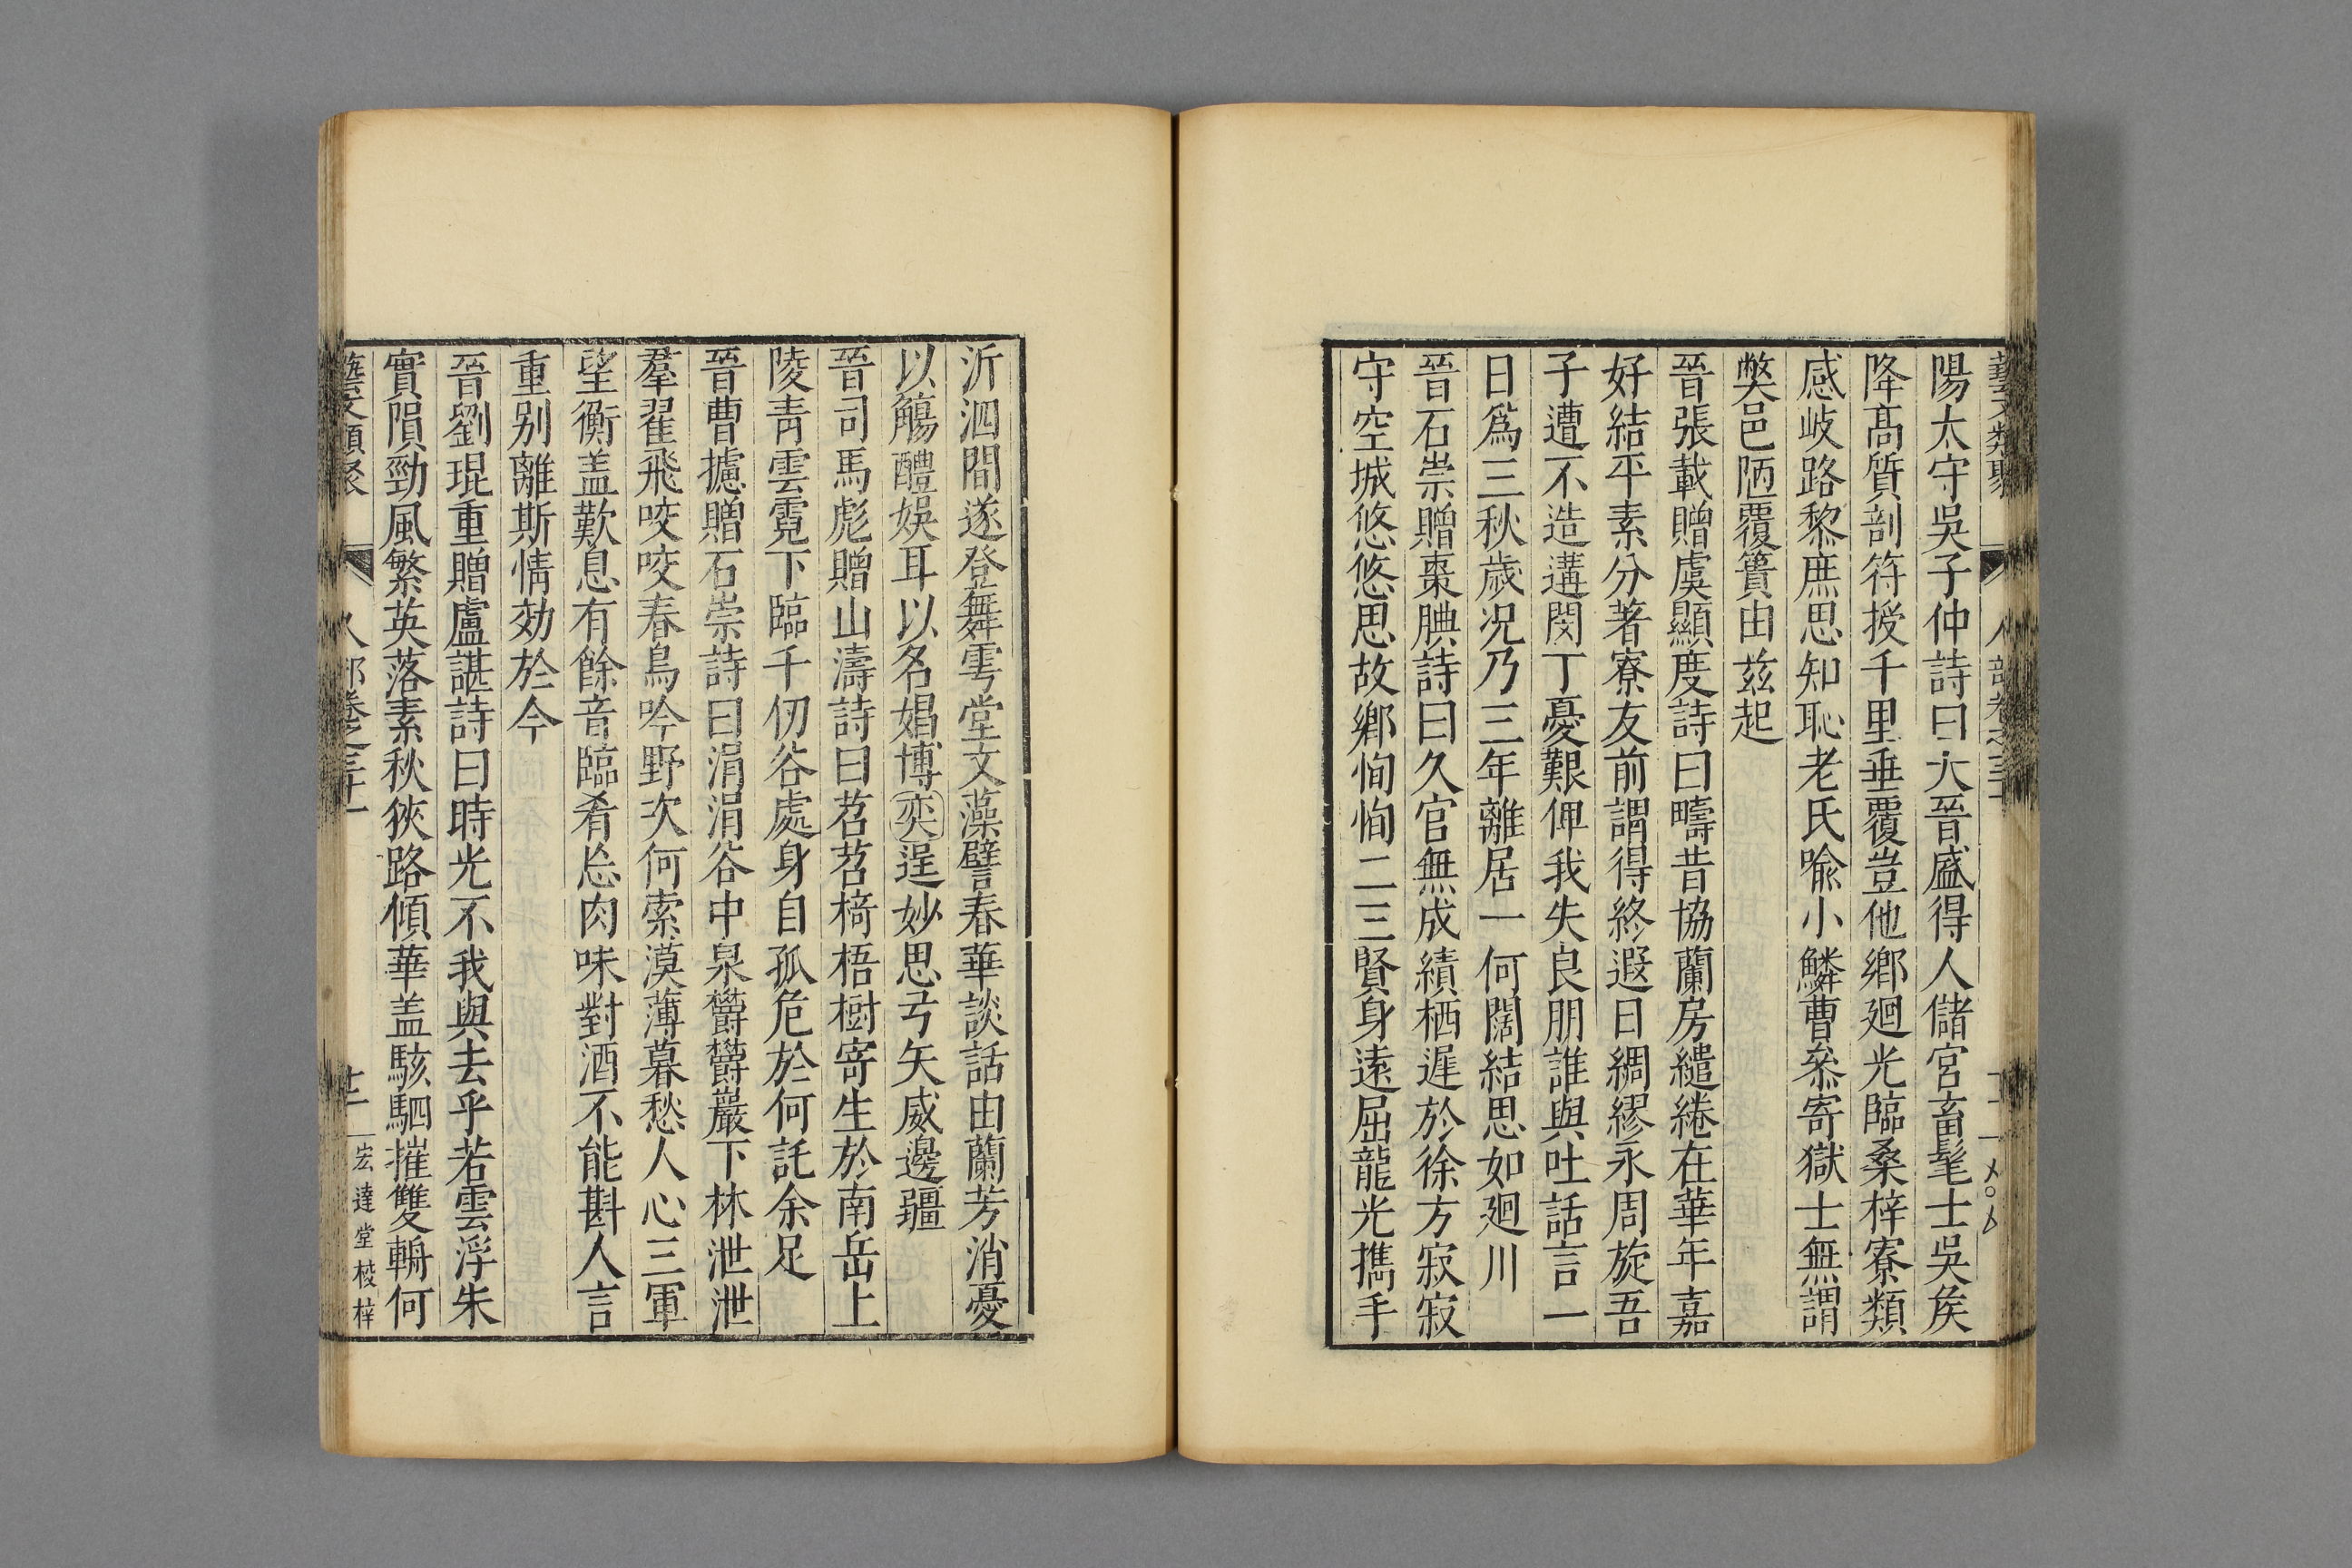 陽太守吳子仲詩曰大晉盛得人儲宮畜髦士吳矦
降髙質剖符授千里垂覆豈他鄉廻光臨桑梓寮類
感岐路黎庶思知恥老氏喻小鱗曹叅寄獄士無謂
獘邑陋覆簣由兹起
晉張載贈虞顯度詩曰疇昔協蘭房繾綣在華年嘉
好結平素分著寮友前謂得終遐日綢繆永周旋吾
子遭不造遘閔丁憂艱俾我失良朋誰與吐話言一
日爲三秋歲况乃三年離居一何闊結思如廻川
晉石崇贈棗腆詩曰久官無成績栖遲於徐方寂寂
守空城悠悠思故鄉恂恂二三賢身遠屈龍光攜手
沂泗間遂登舞雩堂文藻譬春華談話由蘭芳消憂
以觴醴娱耳以名娼博奕逞妙思弓矢威邊疆
晉司馬彪贈山濤詩曰苕苕椅梧樹寄生於南岳上
陵青雲霓下臨千仞谷處身自孤危於何託余足
晉曹攄贈石崇詩曰涓涓谷中泉鬱鬱巖下林泄泄
羣翟飛咬咬春鳥吟野次何索漠薄暮愁人心三軍
望衡盖歎息有餘音臨肴忩肉味對酒不能斟人言
重别離斯情効於今
晉劉琨重贈盧諶詩曰時光不我與去乎若雲浮朱
實隕勁風繁英落素秋狹路傾華盖駭駟摧雙輈何
藝文類聚 人部卷之三十一 十二 宏達堂梭梓